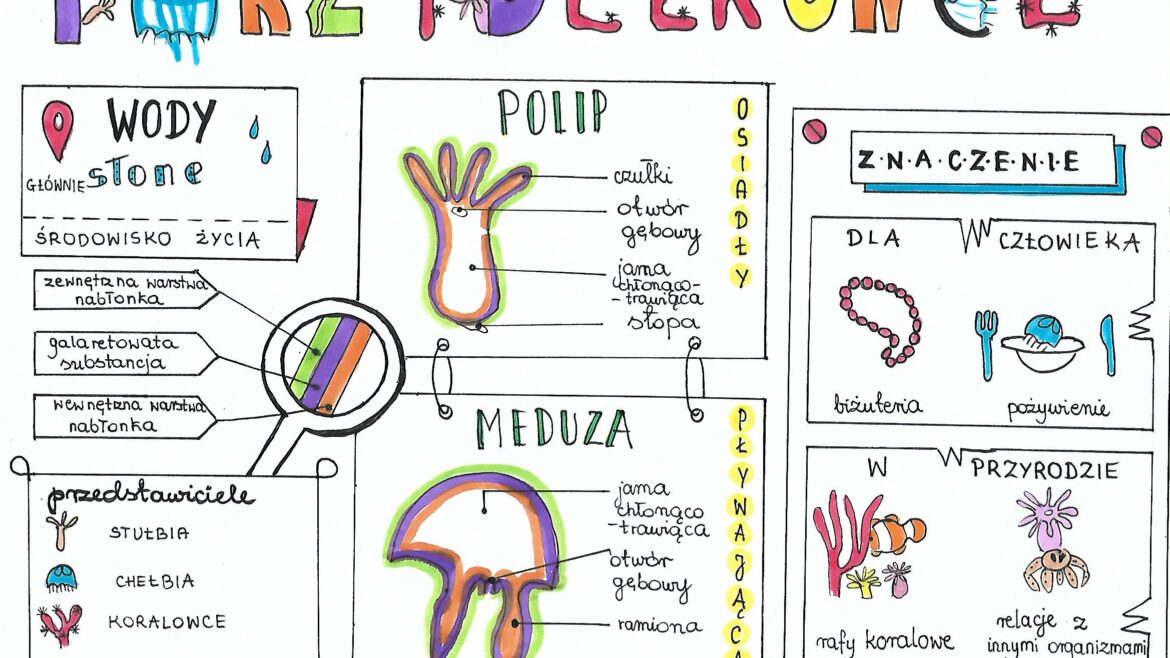 PARZYDEŁKOWCE
WODY
GŁÓWNIE słone
ŚRODOWISKO ŻYCIA
zewnętrzna warstwa
nabłonka
galaretowata
substancja
wewnętrzna warstwa
nabłonka
przedstawiciele
STUŁBIA
CHEŁBIA
KORALOWCE
POLIP
czułki
otwór
gębowy
jama
chłonąco-
-trawiąca
stopa
OSIADŁY
MEDUZA
jama
chłonąco
-trawiąca
otwór
gębowy
ramiona
PŁYWAJĄCA
Z·N·A·C·Z·E·N·I·E
DLA CZŁOWIEKA
biżuteria
pożywienie
W PRZYRODZIE
rafy koralowe
relacje z
innymi organizmami